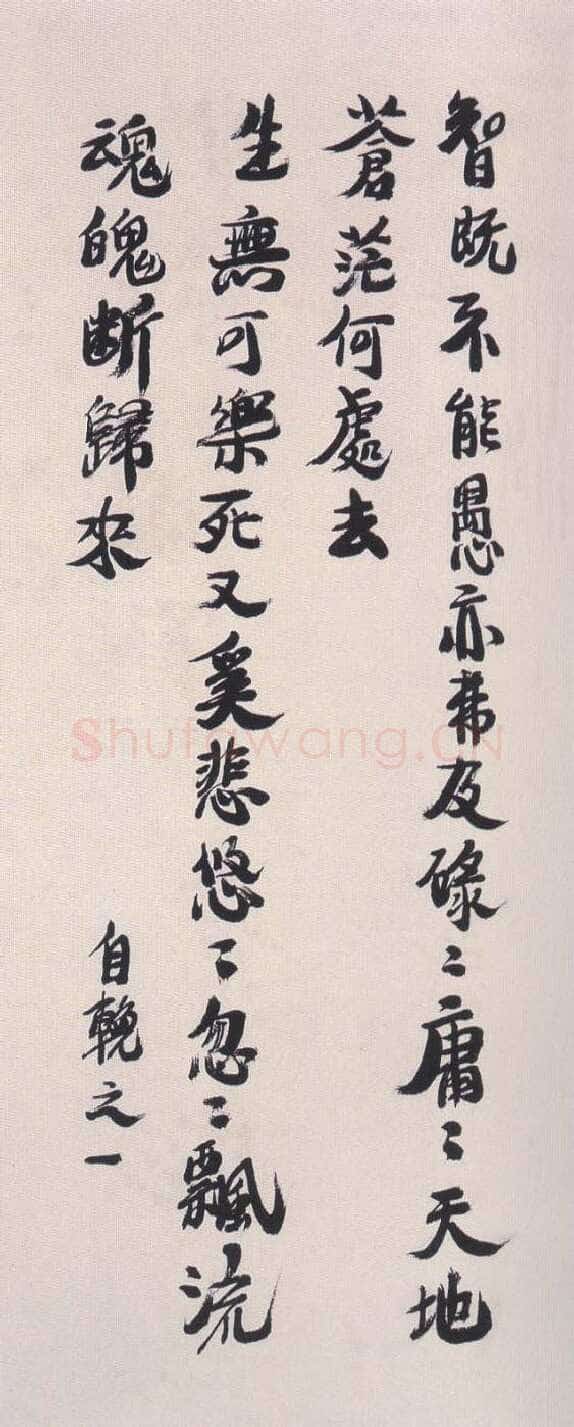 智既不能愚亦弗及碌〻庸〻天地
蒼茫何處去
生無可樂死又奚悲悠〻忽〻飄流
魂魄断歸来
自輓之一
Shufawang.CN